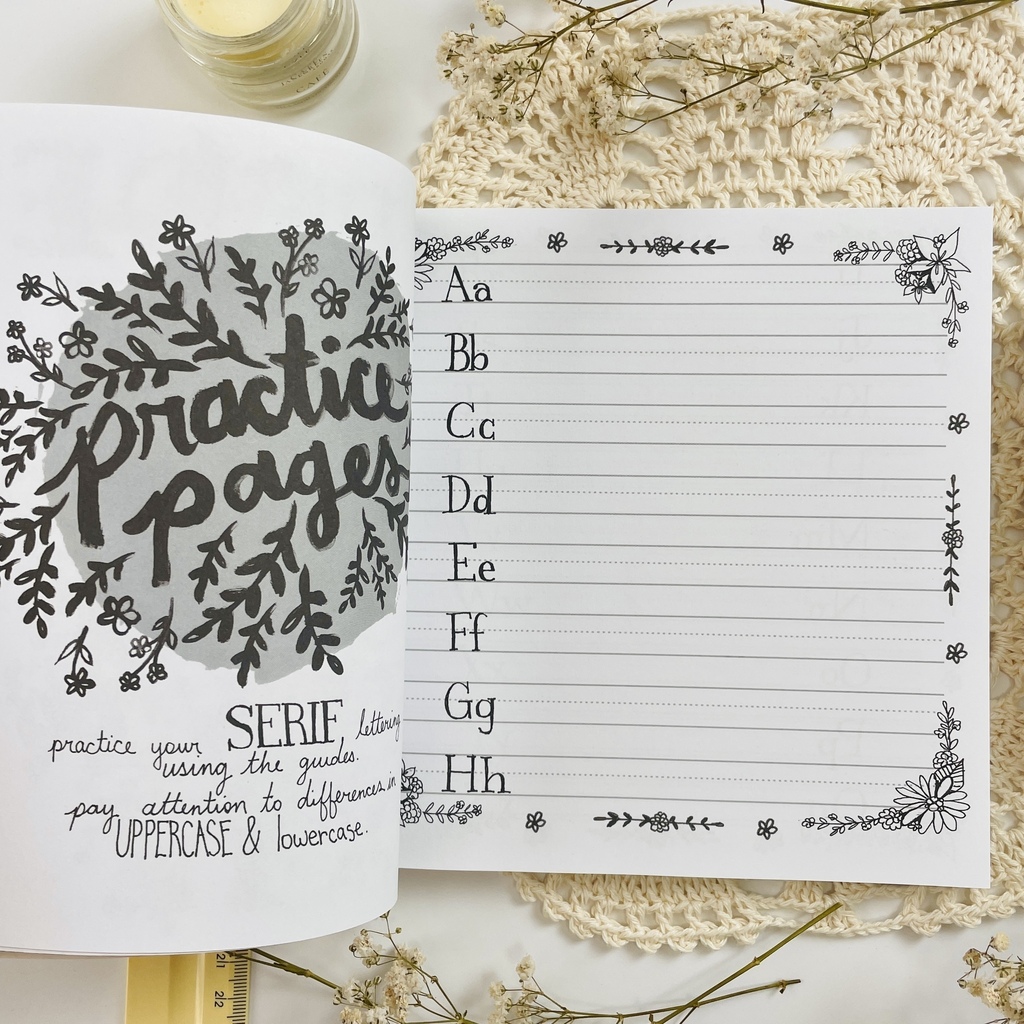 practice
pages
practice your SERIF lettering
using the guides.
pay attention to differences in
UPPERCASE & lowercase.
Aa
Bb
Cc
Dd
Ee
Ff
Gg
Hh
2/1
2/2